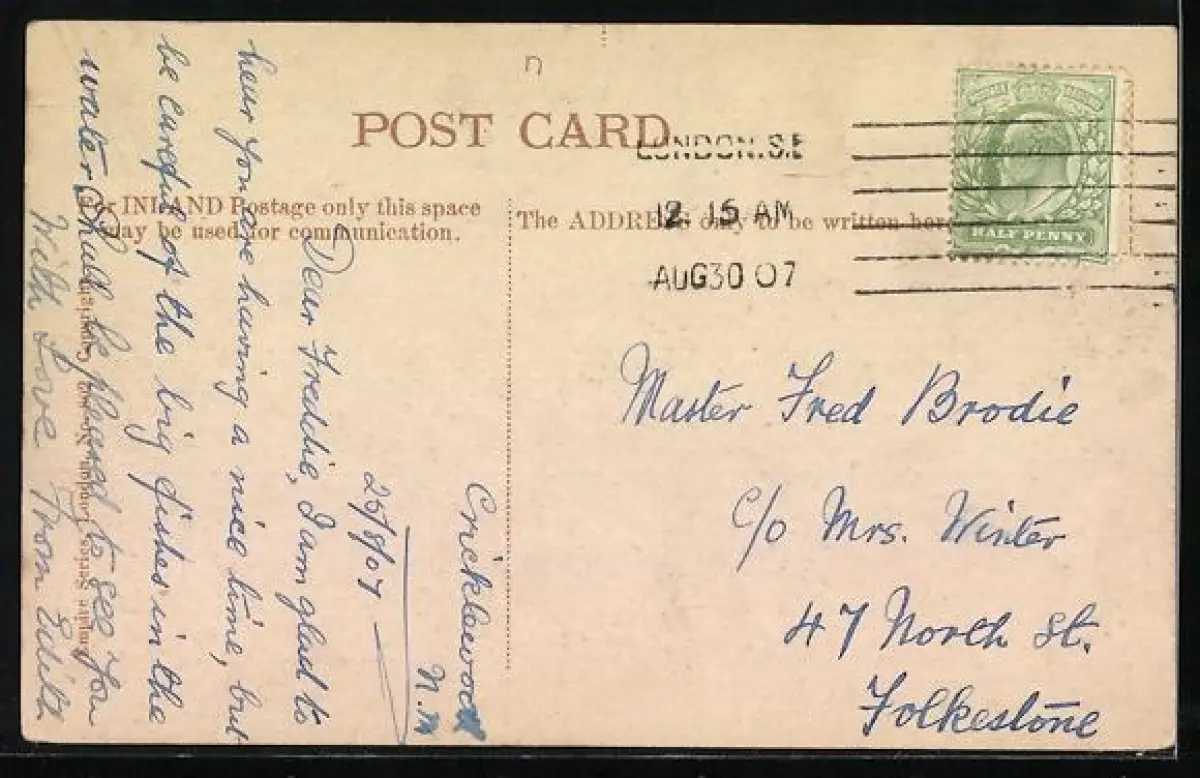 n
POST CARD
LONDON. S.E
12 15 AM
AUG 30 07
For INLAND Postage only this space
may be used for communication.
The ADDRESS only to be written here
HALF PENNY
Cricklewood
N.W
25/8/07
Dear Freddie, I am glad to
hear you are having a nice time, but
be careful of the big fishes in the
water Shall be pleased to see you
With Love From Edith
Master Fred Brodie
c/o Mrs. Winter
47 North St.
Folkestone
Empire Series London